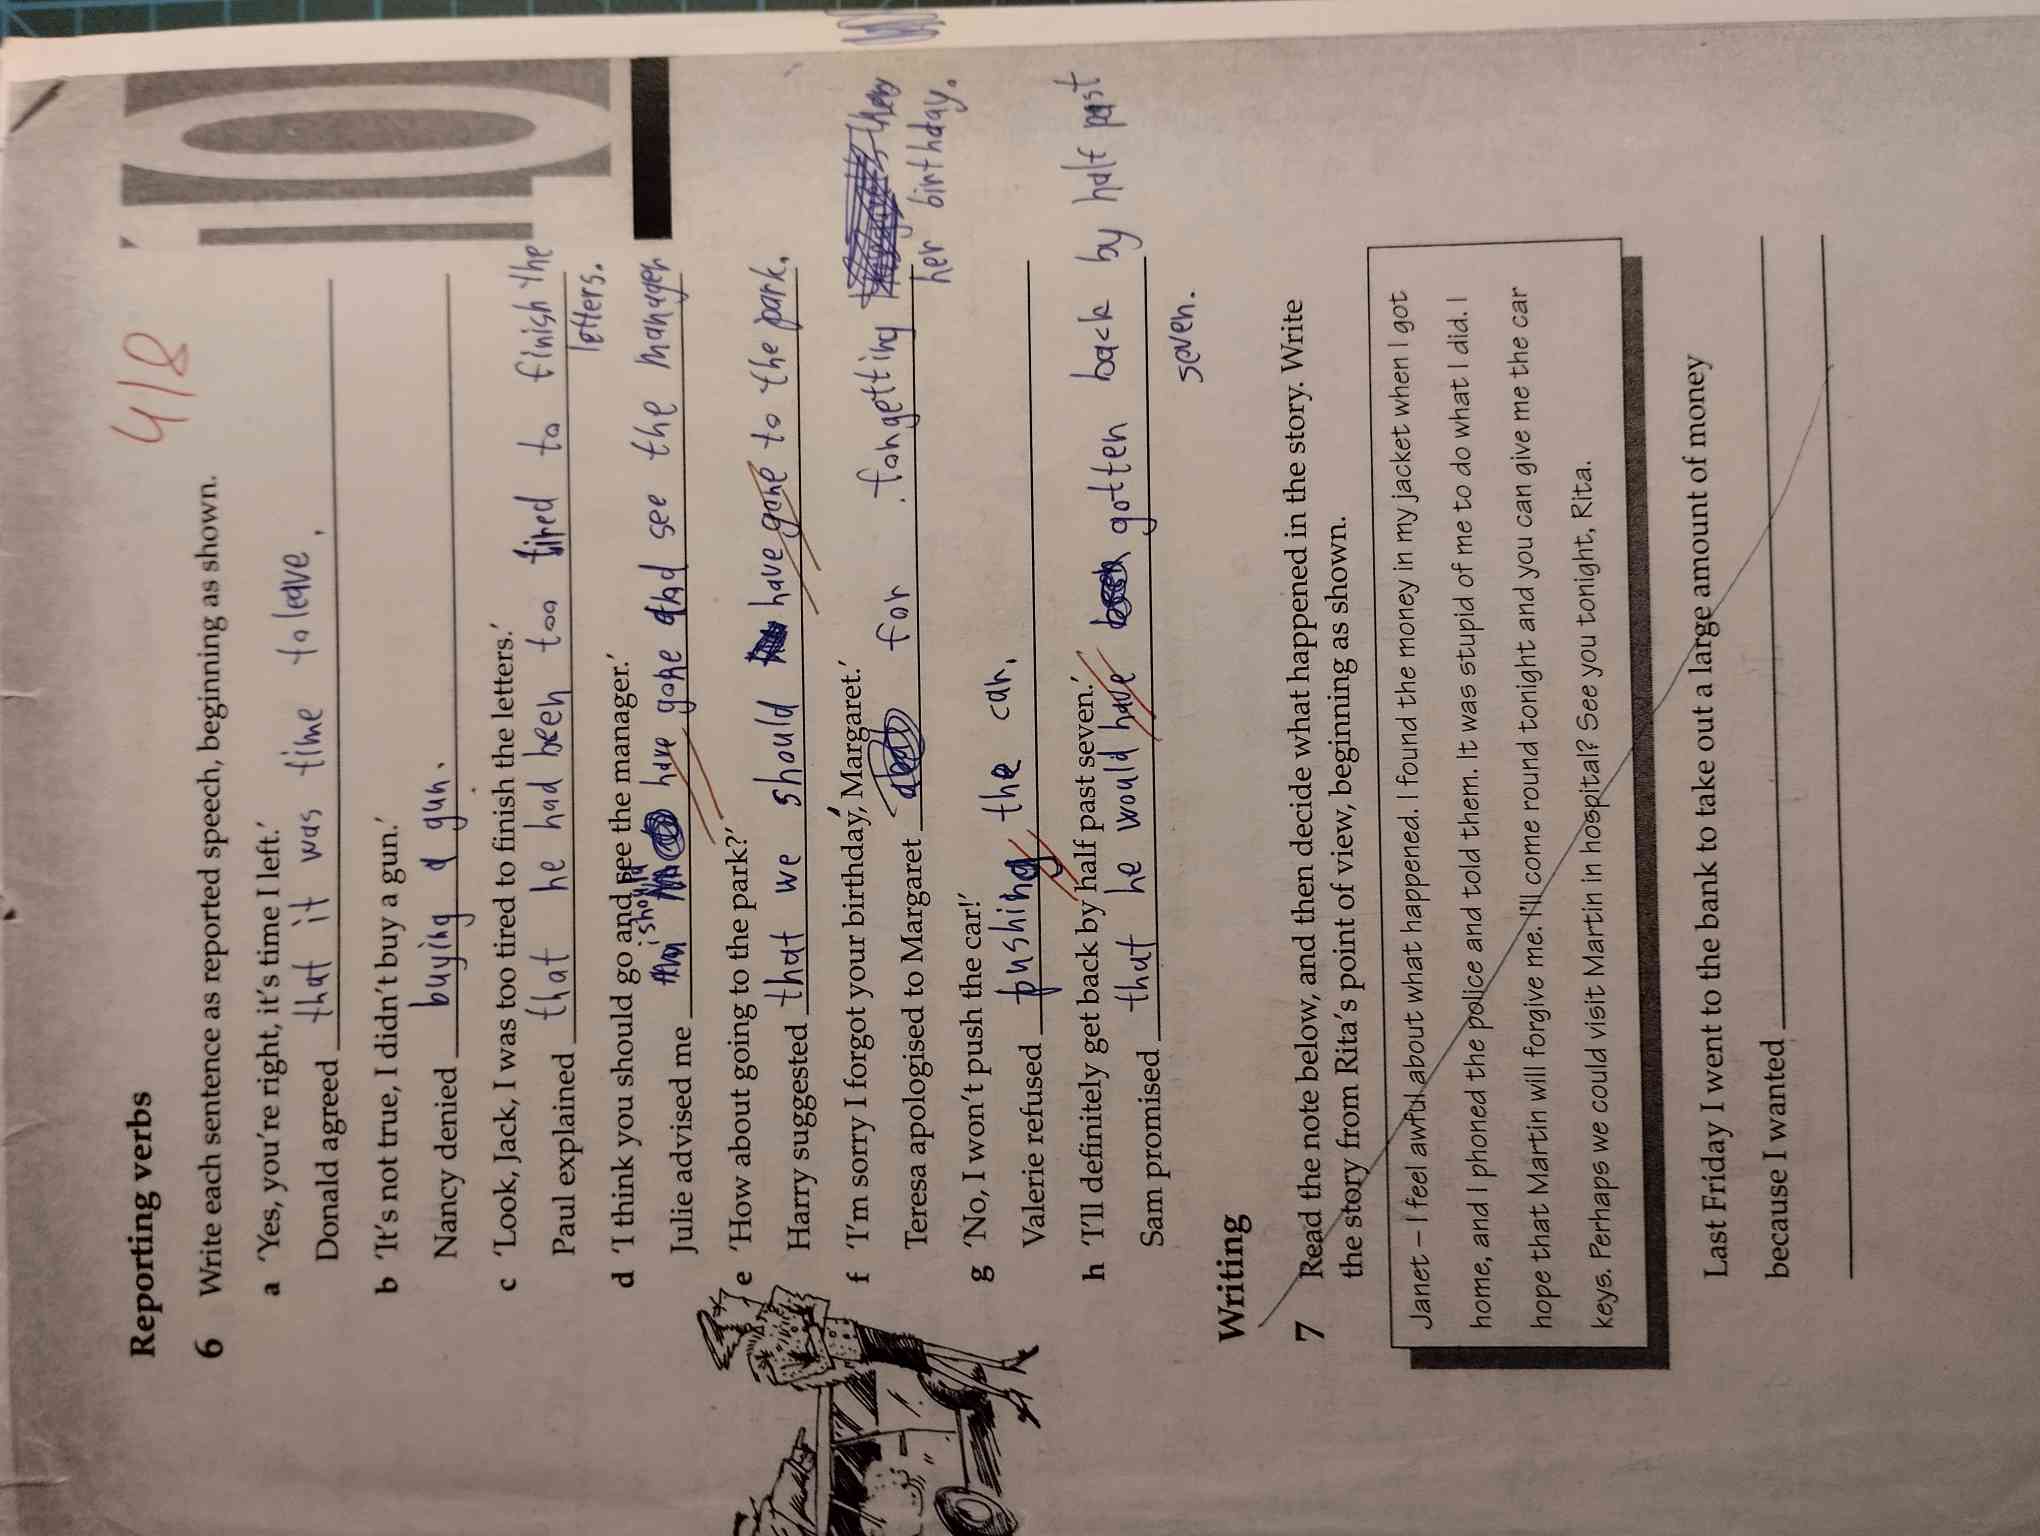 Reporting verbs
4/8
10
6 Write each sentence as reported speech, beginning as shown.
a 'Yes, you're right, it's time I left.'
Donald agreed that it was time to leave.
b 'It's not true, I didn't buy a gun.'
Nancy denied buying a gun.
c 'Look, Jack, I was too tired to finish the letters.'
Paul explained that he had been too tired to finish the
letters.
d 'I think you should go and see the manager.'
i should
Julie advised me have gone and see the manager
e 'How about going to the park?'
Harry suggested that we should have gone to the park.
f 'I'm sorry I forgot your birthday, Margaret.'
Teresa apologised to Margaret for forgetting
her birthday.
g 'No, I won't push the car!'
Valerie refused pushing the car.
h 'I'll definitely get back by half past seven.'
Sam promised that he would have gotten back by half past
seven.
Writing
7 Read the note below, and then decide what happened in the story. Write
the story from Rita's point of view, beginning as shown.
Janet – I feel awful about what happened. I found the money in my jacket when I got
home, and I phoned the police and told them. It was stupid of me to do what I did. I
hope that Martin will forgive me. I'll come round tonight and you can give me the car
keys. Perhaps we could visit Martin in hospital? See you tonight, Rita.
Last Friday I went to the bank to take out a large amount of money
because I wanted